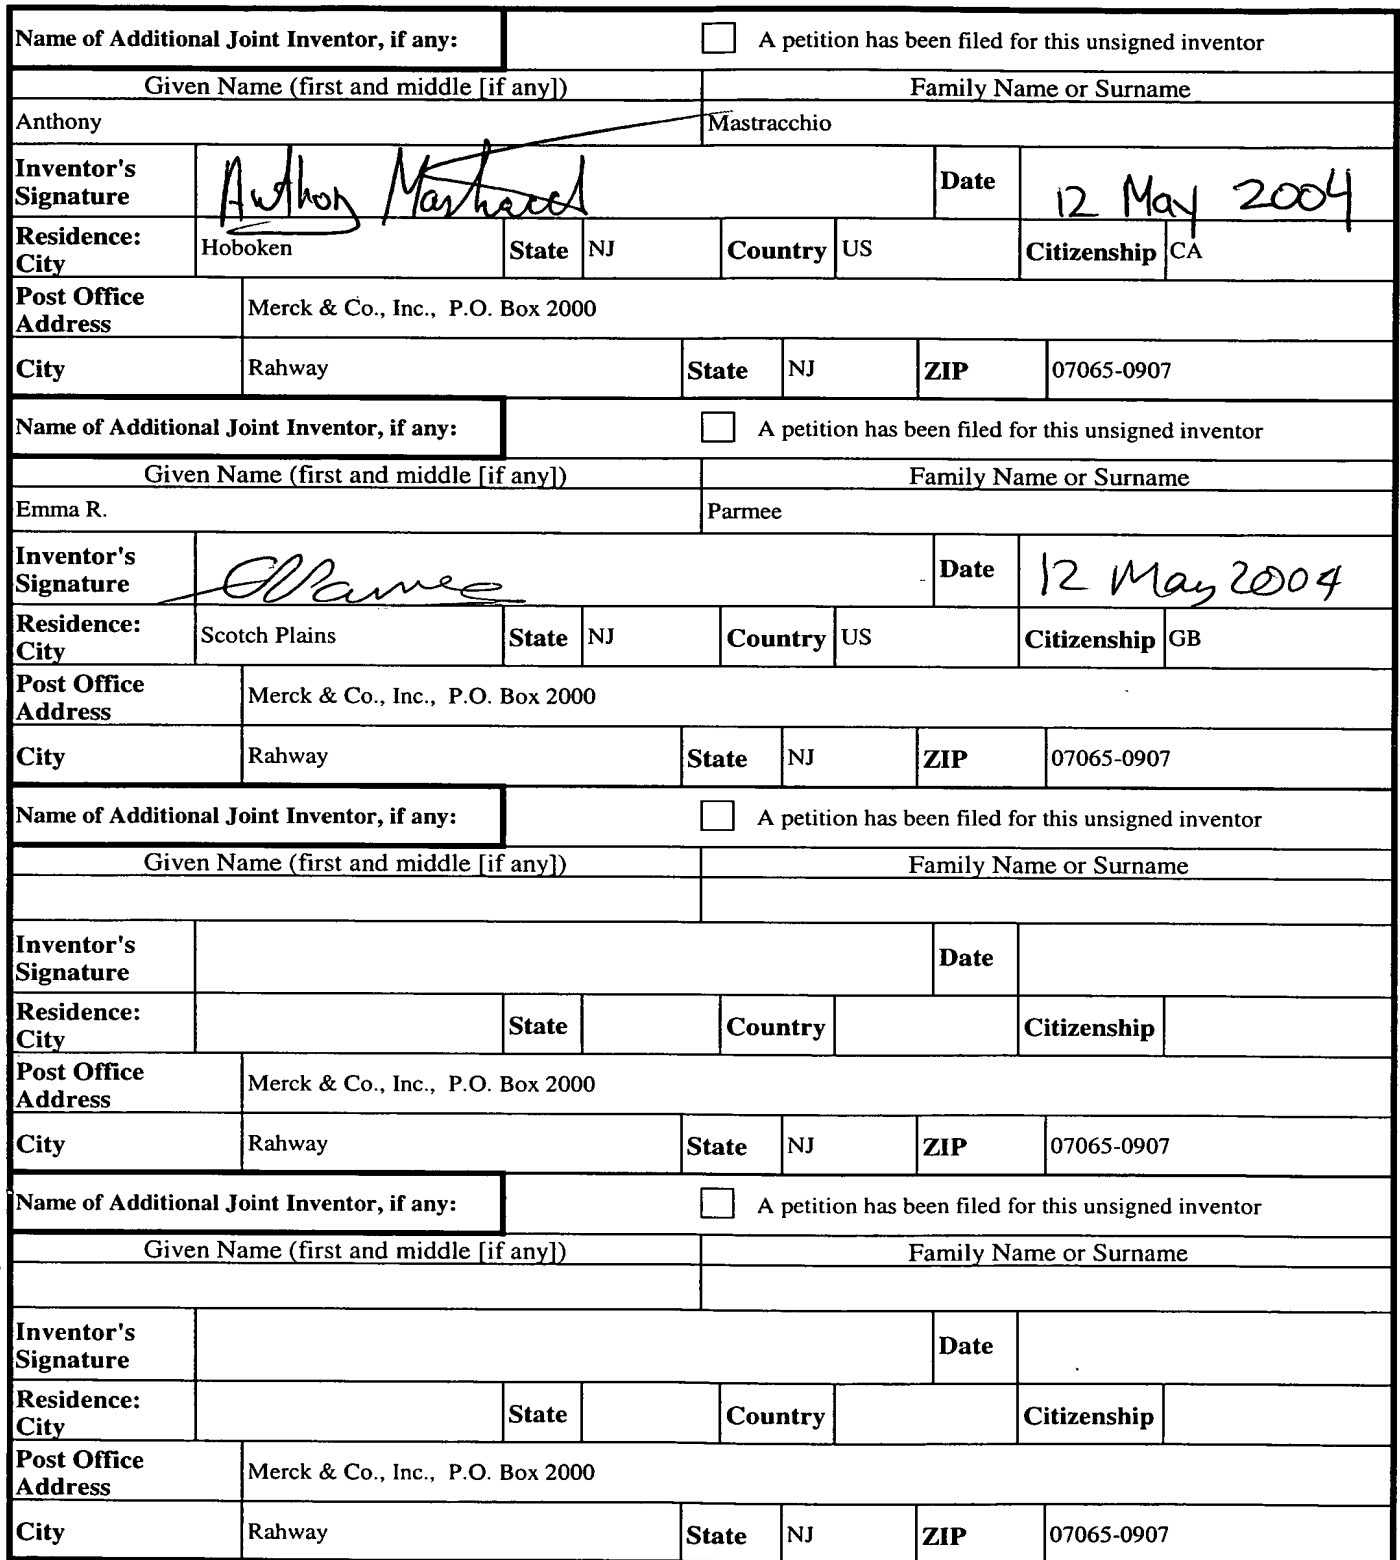 Name of Additional Joint Inventor, if any: A petition has been filed for this unsigned inventor
Given Name (first and middle [if any]) Family Name or Surname
Anthony Mastracchio
Inventor's
Signature Anthony Date 12 May 2004
Residence:
City Hoboken State NJ Country US Citizenship CA
Post Office
Address Merck & Co., Inc., P.O. Box 2000
City Rahway State NJ ZIP 07065-0907
Name of Additional Joint Inventor, if any: A petition has been filed for this unsigned inventor
Given Name (first and middle [if any]) Family Name or Surname
Emma R. Parmee
Inventor's
Signature Date 12 May 2004
Residence:
City Scotch Plains State NJ Country US Citizenship GB
Post Office
Address Merck & Co., Inc., P.O. Box 2000
City Rahway State NJ ZIP 07065-0907
Name of Additional Joint Inventor, if any: A petition has been filed for this unsigned inventor
Given Name (first and middle [if any]) Family Name or Surname
Inventor's
Signature Date
Residence:
City State Country Citizenship
Post Office
Address Merck & Co., Inc., P.O. Box 2000
City Rahway State NJ ZIP 07065-0907
Name of Additional Joint Inventor, if any: A petition has been filed for this unsigned inventor
Given Name (first and middle [if any]) Family Name or Surname
Inventor's
Signature Date
Residence:
City State Country Citizenship
Post Office
Address Merck & Co., Inc., P.O. Box 2000
City Rahway State NJ ZIP 07065-0907